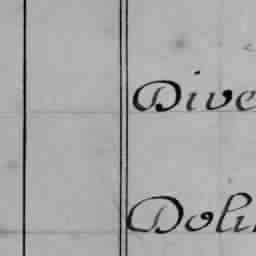 Dive
Doli